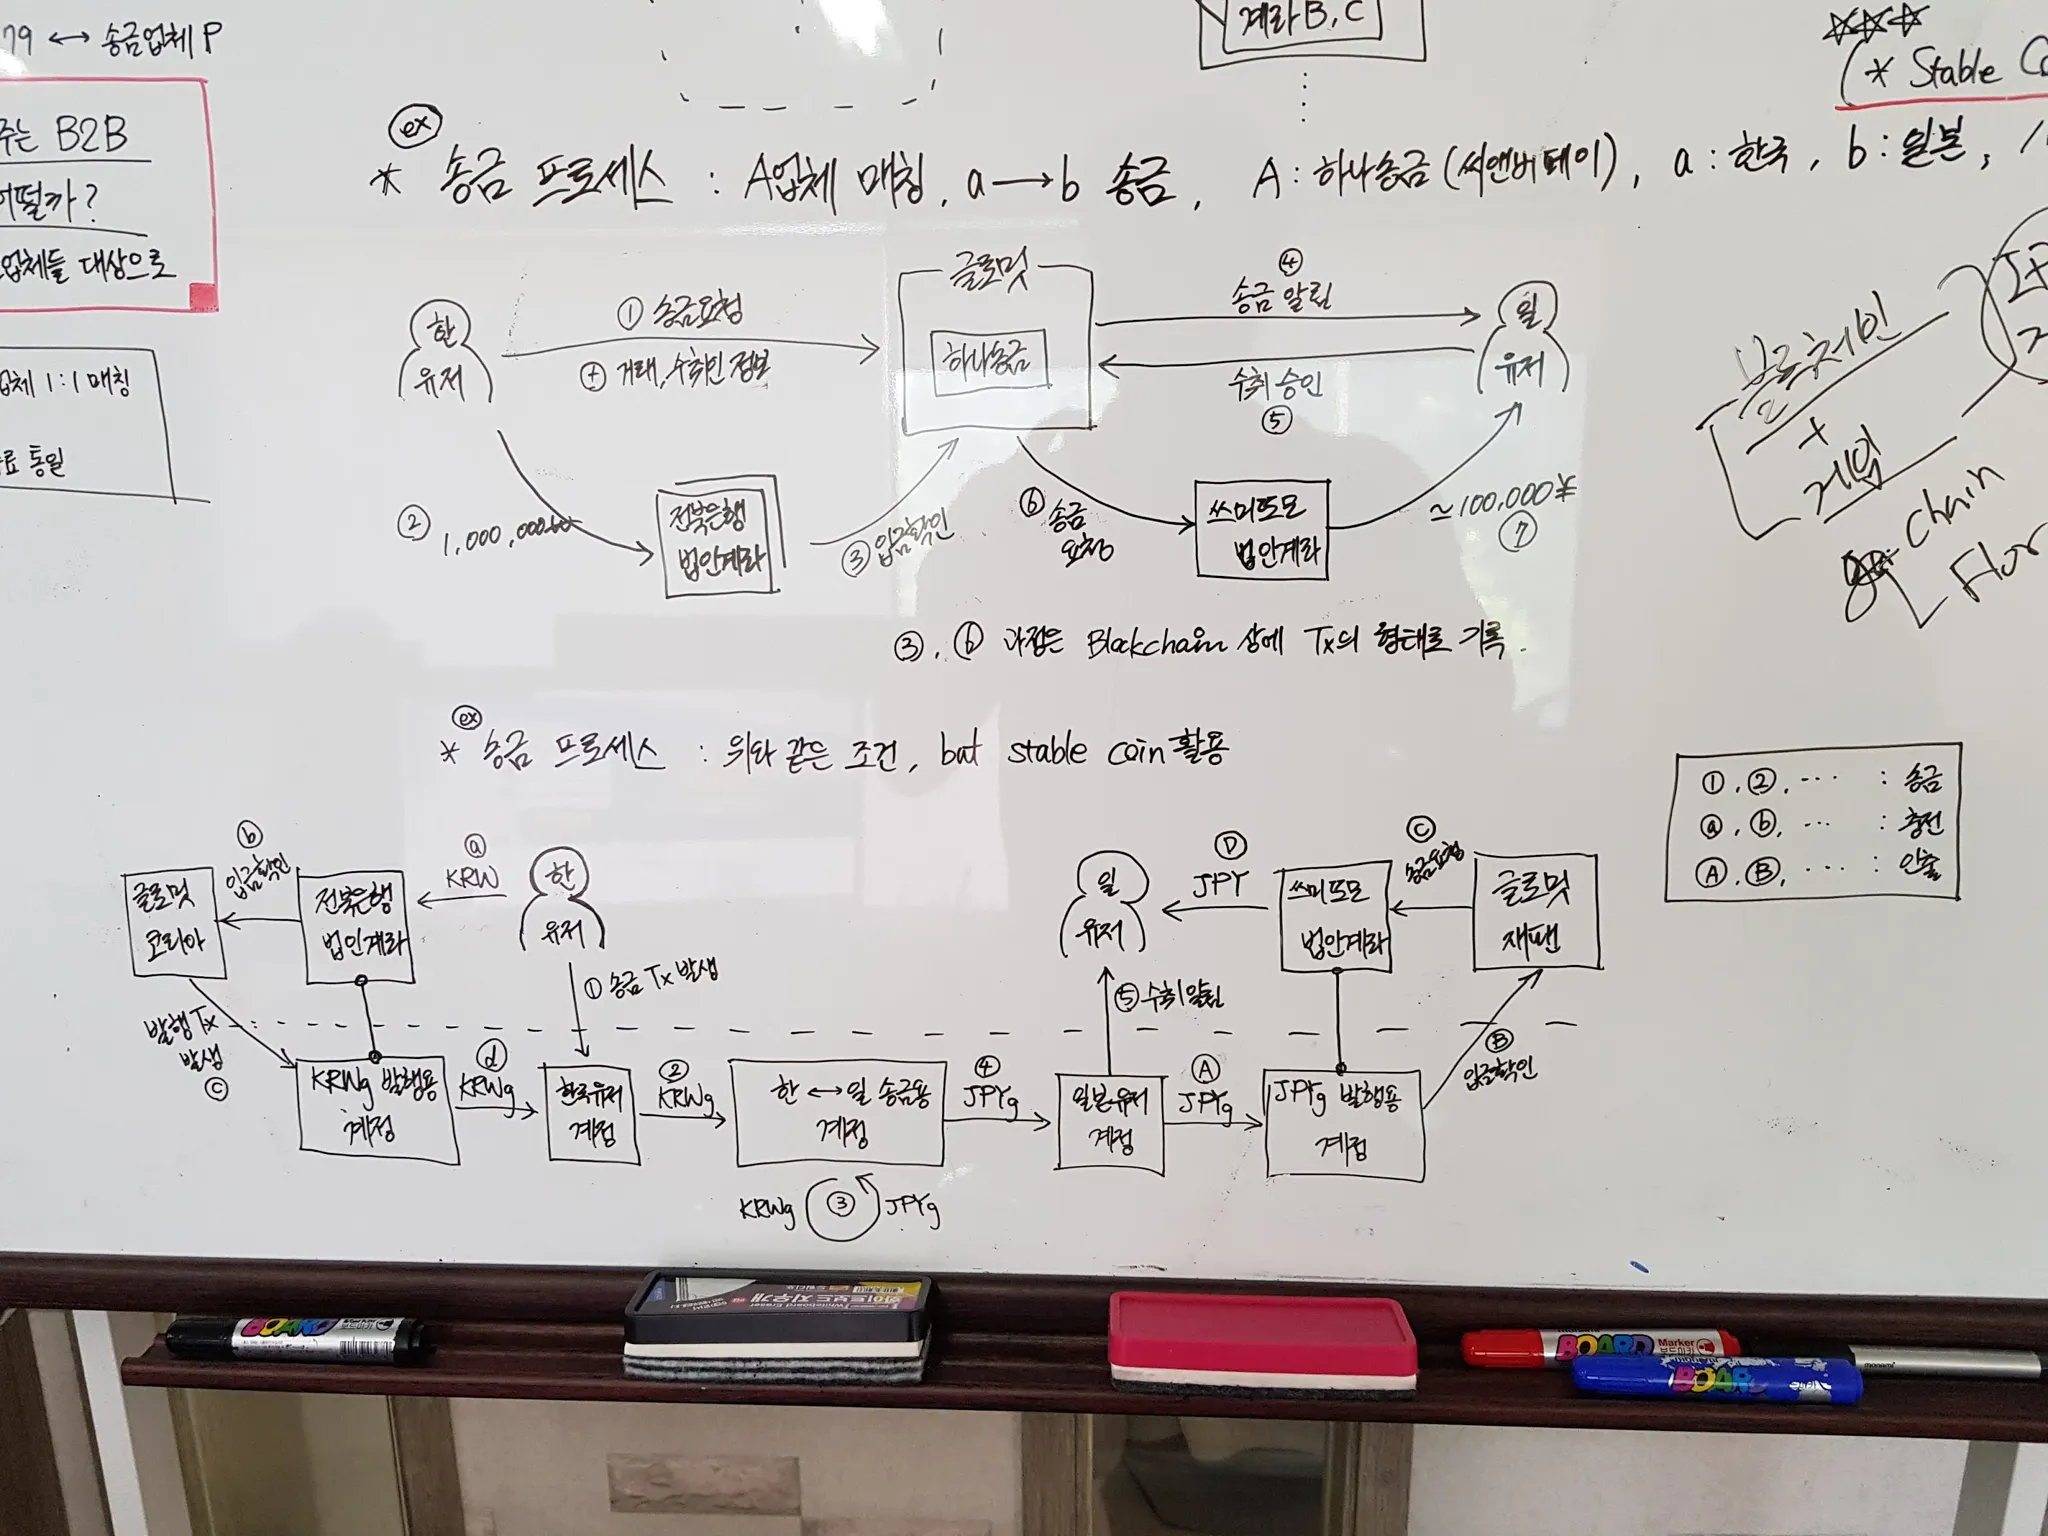 79 ↔ 송금업체 P
주는 B2B
어떨까?
업체들 대상으로
업체 1:1 매칭
료 통일
계좌 B, C
* Stable Co
ex
* 송금 프로세스 : A업체 매칭, a → b 송금, A : 하나송금 (씨앤버페이), a : 한국, b : 일본,
한
유저
① 송금요청
⊕ 거래, 수취인 정보
글로멋
하나송금
④
송금 알림
수취 승인
⑤
일
유저
② 1,000,000
전북은행
법인계좌
③ 입금확인
⑥ 송금
요청
쓰미또모
법인계좌
≃100,000¥
⑦
③, ⑥ 과정은 Blockchain 상에 Tx의 형태로 기록.
블록체인
+
게임
Chain
Flor
ex
* 송금 프로세스 : 위와 같은 조건, but stable coin 활용
①, ②, ... : 송금
ⓐ, ⓑ, ... : 충전
Ⓐ, Ⓑ, .... : 인출
글로멋
코리아
ⓑ
입금확인
전북은행
법인계좌
ⓐ
KRW
한
유저
일
유저
Ⓓ
JPY
쓰미또모
법인계좌
ⓒ
송금요청
글로멋
재팬
① 송금 Tx 발생
⑤ 수취알림
발행 Tx
발생
ⓒ
Ⓑ
입금확인
KRWg 발행용
계정
ⓓ
KRWg
한국유저
계정
②
KRWg
한 ↔ 일 송금용
계정
④
JPYg
일본유저
계정
Ⓐ
JPYg
JPYg 발행용
계정
KRWg ③ JPYg
화이트보드 지우개
Whiteboard Eraser
BOARD
BOARD Marker
보드마카
monami
BOARD
monami